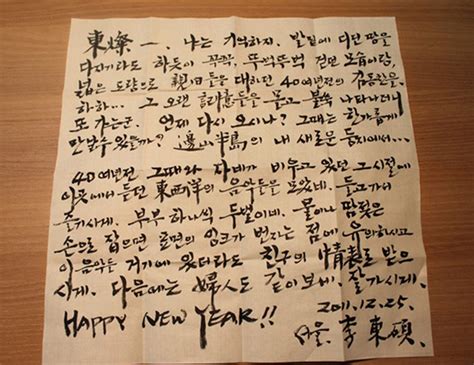 東燦 一. 나는 기억하지. 발밑에 디딘 땅을
다지기라도 하듯이 꾹꾹, 뚜벅뚜벅 걷던 모습이랑,
넓은 도량으로 親旧들을 대하던 40여년전의 김동찬을.
하하... 그 오랜 세월들을 몰고 불쑥 나타나더니
또 가는군. 언제 다시 오시나? 그때는 한가롭게
만날수 있을까? 邊山半島의 내 새로운 둥지에서...
40여년전 그때와 다방가 비우고 있던 그 시절에
이곳에서 듣던 東西洋의 음악들을 모았네. 들고가서
즐기시게. 부부 하나씩 두벌이네. 물이나 땀젖은
손으로 잡으면 표면의 잉크가 번지는 점에 유의하시고
이 음악들 거기에 있더라도 친구의 情表로 받으
시게. 다음에는 婦人도 같이 보세. 잘가시게.
HAPPY NEW YEAR!!
2011.12.25.
서울. 李東碩.